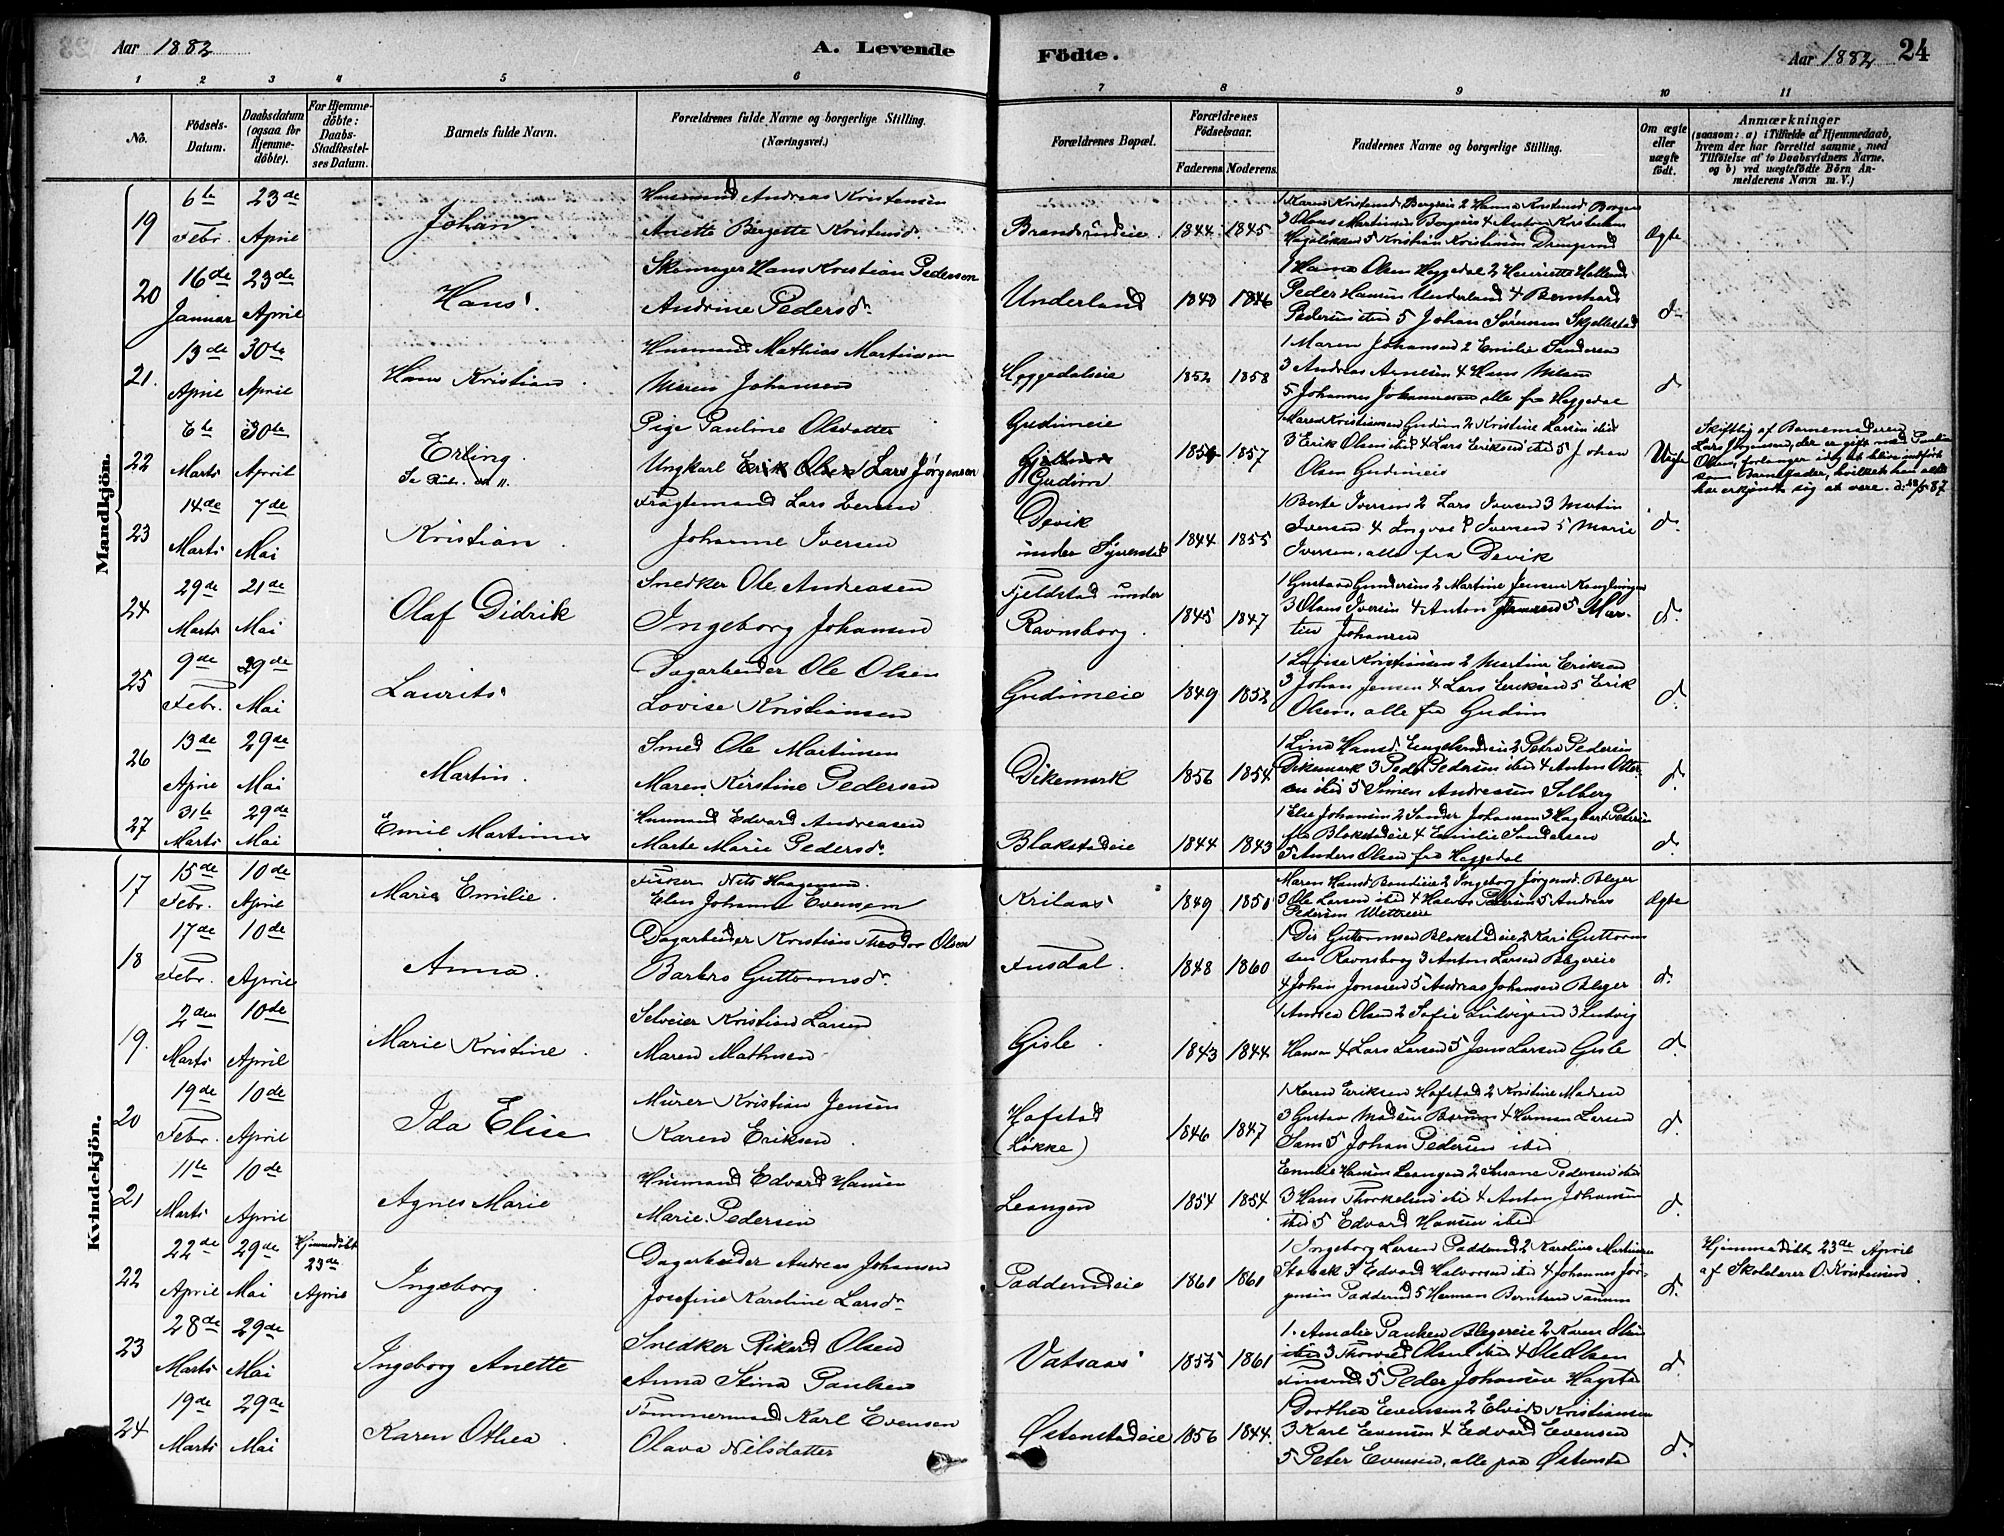 Aar 1882
A. Levende
Födte.
Aar 1882
24
1 2 3 4 5 6 7 8 9 10 11
No.
Födsels-
Datum.
Daabsdatum
(ogsaa for
Hjemme-
döbte).
For Hjemme-
döbte:
Daabs-
Stadfæstel-
ses Datum.
Barnets fulde Navn.
Forældrenes fulde Navne og borgerlige Stilling.
(Næringsvei.)
Forældrenes Bopæl.
Forældrenes
Födselsaar.
Faderens Moderens
Faddernes Navne og borgerlige Stilling.
Om ægte
eller
uægte
födt.
Anmærkninger
(saasom: a) i Tilfælde af Hjemmedaab,
hvem der har forrettet samme, med
Tilföielse af to Daabsvidners Navne.
og b) ved uægtefödte Börn An-
melderens Navn m. V.)
Mandkjön.
19
6te Febr.
23de April
Johan
Husmand Andreas Kristensen
Anette Bergette Kristensd.
1844 1845
Ægte
20
16de Januar
23de April
Hans
Hans Kristian Pedersen
Andrine Pedersd.
Underland
1840 1846
1 Hans Olsen Heggedal 2 Henriette
Peder Hansen Underland 4 Bernhard
Pedersen ibid 5 Johan Sørensen Skjellestad
d.
21.
13de April
30te April
Hans Kristian
Husmand Mathias Martinsen
Maren Johansen
Heggedalseie
1852 1858
1 Maren Johansen 2 Emilie Sandersen
3 Andreas Arnesen 4 Hans Nilsen
5 Johannes Johannesen alle fra Heggedal
d.
22
6te Marts
30te April
Erling
Pige Pauline Olsdatter
Ungkarl Erik Olsen Lars Jørgensen
Gudimeie
Gudim
1857
1 Maren Kristiansen Gudim 2 Kristine Larsen ibid
3 Erik Olsen ibid 4 Lars Eriksen ibid 5 Johan
Olsen Gudimeie
Uægte
Skiftlig af Barnemoderen
Lars Jørgensen, der er gift med Pauline
Olsen, forlanger idag at blive indført
som Barnefader, hvilket han altid
har erkjendt sig at være.
23
14de Marts
7de Mai
Kristian
Fragtemand Lars Iversen
Johanne Iversen
Devik
under
1844 1855
1 Berte Iversen 2 Lars Iversen 3 Martin
Iversen 4 Ingval P Iversen 5 Marie
Iversen, alle fra Devik
d.
24
29de Marts
21de Mai
Olaf Didrik
Snedker Ole Andreasen
Ingeborg Johansen
Fjeldstad under
Ravnsborg.
1845 1847
1 Gustava Gundersen 2 Martine Jensen
3 Olaus Iversen 4 Anton Jensen 5 Mar-
tin Johansen
d.
25
9de Febr.
29de Mai
Laurits
Dagarbeider Ole Olsen
Lovise Kristiansen
Gudimeie
1849 1852
1 Lovise Kristiansen 2 Martine Eriksen
3 Johan Jensen 4 Lars Eriksen 5 Erik
Olsen, alle fra Gudim
d.
26
13de April
29de Mai
Martin.
Smed Ole Martinsen
Maren Kirstine Pedersen
Dikemark
1856 1854
1 Lina Hansd. 2 Petra Pedersen
Dikemark 3 Peder Pedersen ibid 4 Anton Otter-
sen ibid 5 Simen Andreasen Solberg
d.
27
31te Marts
29de Mai
Emil Martinius
Husmand Edvard Andreasen
Marte Marie Pedersd.
Blakstadeie
1844 1843
1 Else Johansen 2 Sander Johansen 3 Hagbart Petersen
fra Blakstadeie 4 Emilie Sandersen
5 Anders Olsen fra Heggedal
d.
Kvindekjön.
17
15de Febr.
10de April
Marie Emilie.
Fisker Nils Haagensen.
Elen Johanne Evensen
1849 1850
Maren Hansd Bondieie 2 Ingeborg Jørgensd. Bleger
3 Ole Larsen ibid 4 5 Andreas
Pedersen Wettreeie
Ægte
18
17de Febr.
10de April
Anna.
Dagarbeider Kristian Theodor Olsen
Barbro Guttormsd.
Fusdal.
1848 1860
Guttormsen Blakstadeie 2 Kari Guttorm-
sen Ravnsborg 3 Anton Larsen Blegereie
4 Johan Jonasen 5 Andreas Johansen Bleger
d.
19.
2den Marts
10de April
Marie Kristine.
Selveier Kristian Larsen
Maren Mathisen
Gisle.
1843 1844
1 Andrea Olsen 2 Sofie Ludvigsen 3 Ludvig
Hansen 4 Lars Larsen 5 Jens Larsen Gisle
d.
20
19de Febr.
10de April
Ida Elise
Murer Kristian Jensen
Karen Eriksen.
Hofstad
(Løkke)
1846 1847
1 Karen Eriksen Hofstad 2 Kristine Madsen
3 Gustav Madsen Bærum 4 Herman Larsen
Sam 5 Johan Pedersen ibid
d.
21
11te Marts
10de April
Agnes Marie
Husmand Edvard Hansen
Marie Pedersen
Leangen
1854 1854
Emilie Hansen Leangen 2 Pedersen ibid
3 Hans Thorkelsen ibid 4 Anton Johansen
ibid 5 Edvard Hansen ibid
d.
22
22de April
29de Mai
Hjemmedøbt
23de
April
Ingeborg
Dagarbeider Andreas Johansen
Josefine Karoline Larsd.
Padderudeie
1861 1861
1 Ingeborg Larsen Padderud 2 Karoline Martinsen
Stabæk 3 Edvard Halvorsen ibid 4 Johannes Jør-
gensen Padderud 5 Herman Berntsen Tanum
d.
Hjemmedøbt 23de April
af Skolelærer O. Kristensen.
23
28de Marts
29de Mai
Ingeborg Anette
Snedker Rikard Olsen
Anna Stina Paulsen
Vatsaas
1855 1861
1. Amalie Paulsen Blegereie 2 Karen Olsen
ibid 3 Olsen ibid 4 Ole Olsen
5 Peder Johansen
d.
24
19de Marts
29de Mai
Karen Othea.
Tømmermand Karl Evensen
Olava Nilsdatter
Østenstadeie
1856 1844.
1 Dorthea Evensen 2 Kristiansen
3 Karl Evensen 4 Edvard Evensen
5 Peter Evensen, alle paa Østensta
d.